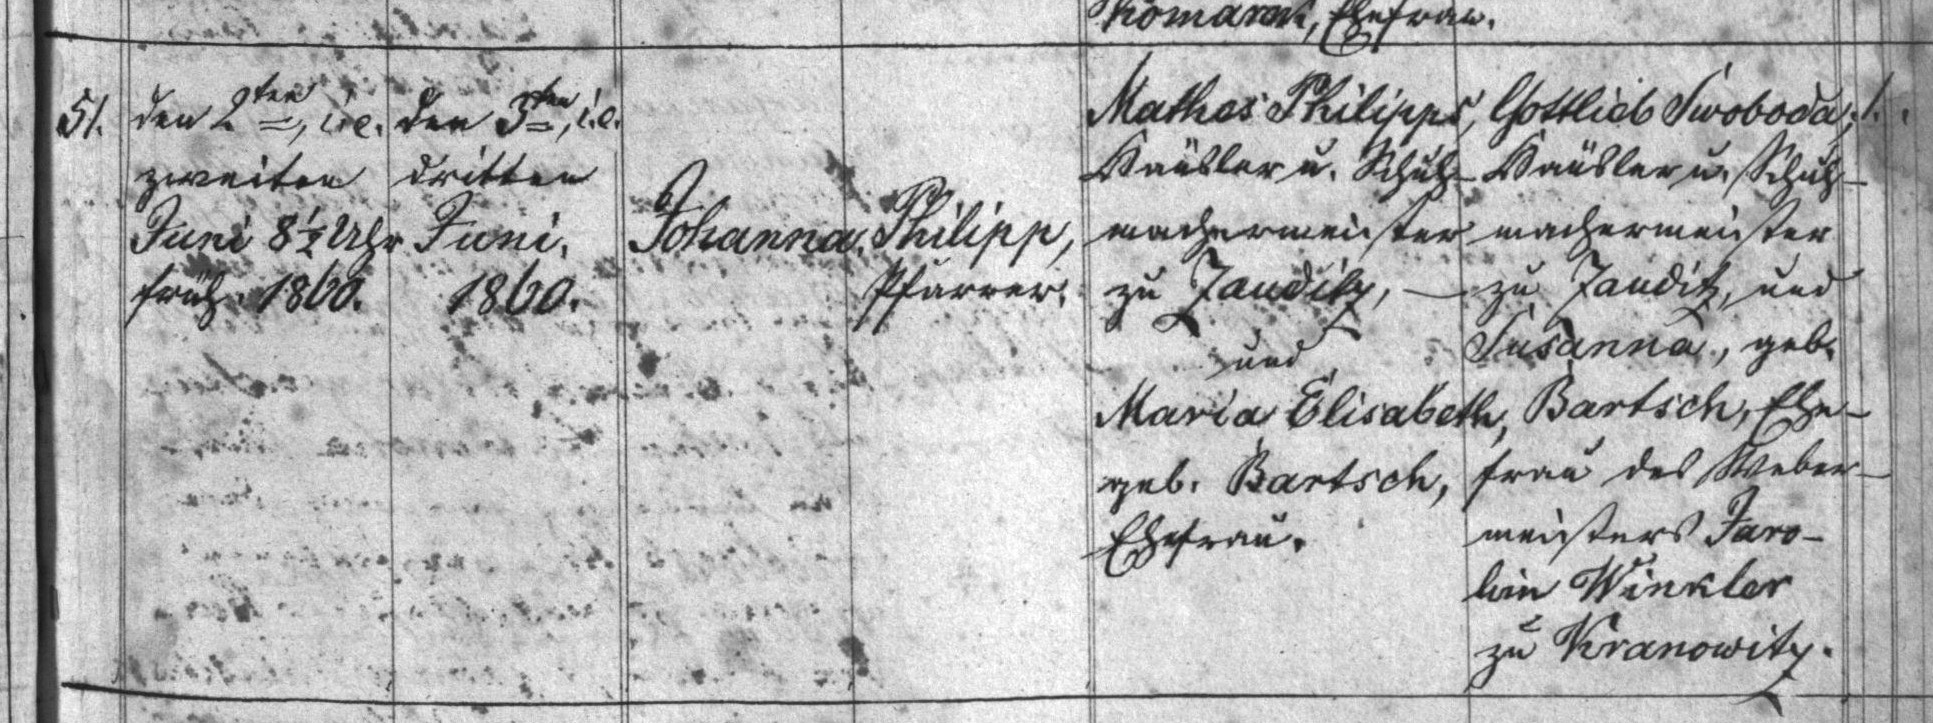 Komarek, Ehefrau.
51.
den 2ten, i.e.
zweiten
Juni 8½ Uhr
früh. 1860.
den 3ten, i.e.
dritten
Juni.
1860.
Johanna.
Philipp,
Pfarrer.
Mathes Philipps,
Häusler u. Schuh-
machermeister
zu Janditz, —
und
Maria Elisabeth,
geb. Bartsch,
Ehefrau.
Gottlieb Swoboda,
Häusler u. Schuh-
machermeister
zu Janditz, und
Susanna, geb.
Bartsch, Ehe-
frau des Weber-
meisters
Winkler
zu Kranowitz.
1.